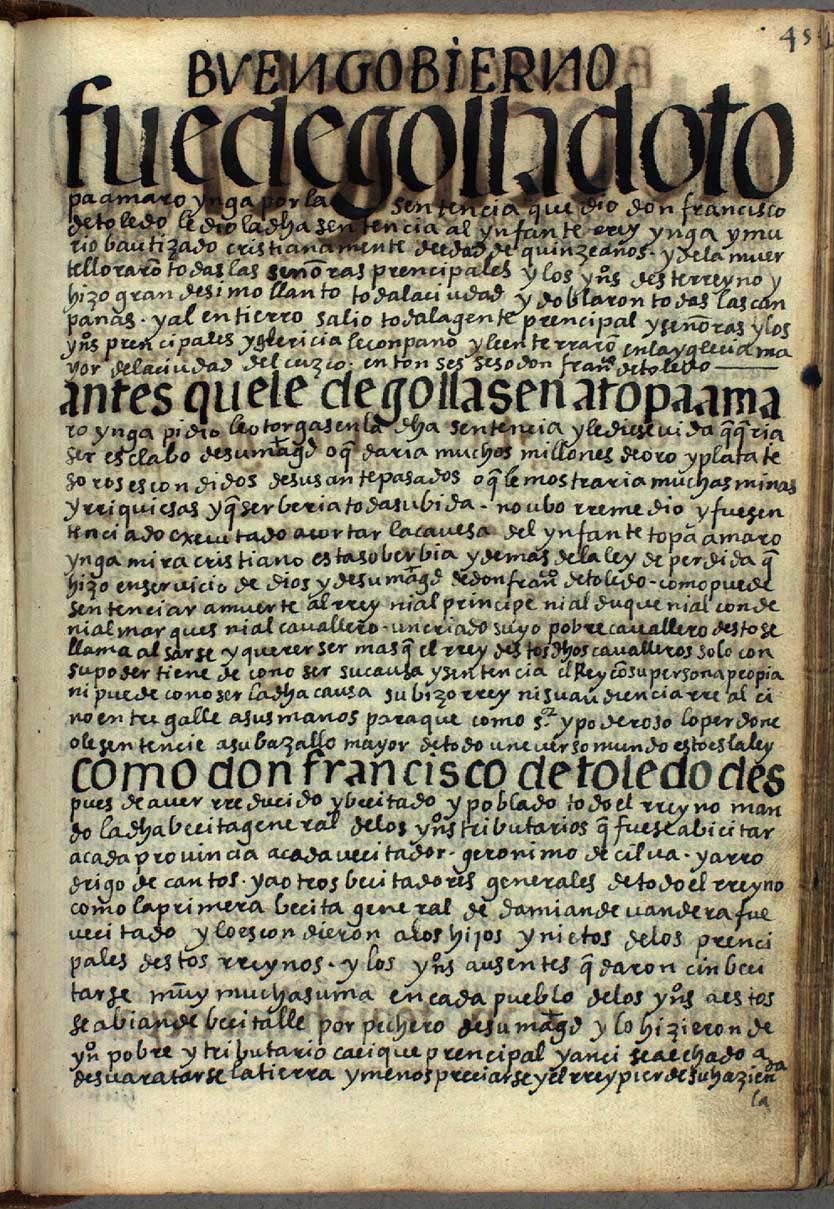 45
BVEN GOBIERNO
fue degollado to
pa amaro ynga por la sentencia que dio don francisco
de toledo le dio la dha sentencia al ynfante rrey ynga y mu
rio bautizado cristianamente de edad de quinze años · y de la muer
te lloraron todas las señoras prencipales y los yns deste rreyno y
hizo grandesimo llanto toda la ciudad y doblaron todas las can
panas · y al entierro salio toda la gente prencipal y señoras y los
yns prencipales y clericia le conpaño y le enterraron en la yglecia ma
yor de la ciudad del cuzco · entonses seso don fran de toledo
antes que le degollasen a topa ama
ro ynga pidio le otorgasen la dha sentencia y le diese vida q qria
ser esclabo de su magd o q daria muchos millones de oro y plata te
soros escondidos de sus antepasados o q le mostraria muchas minas
y rriquiesas y q serberia toda su bida · no ubo rremedio y fue sen
tenciado executado a cortar la cavesa del ynfante topa amaro
ynga mira cristiano esta soberbia y demas de la ley de perdida q
hizo en servicio de dios y de su magd de don fran de toledo · como puede
sentenciar a muerte al rrey ni al principe ni al duque ni al conde
ni al marques ni al cavallero · un criado suyo pobre cavallero desto se
llama alsarse y querer ser mas q el rrey destos dhos cavalleros solo con
su poder tiene de conoser su causa y sentencia el Rey con su persona propia
ni puede conoser la dha causa su bizorrey ni su audiencia rreal ci
no entregalle a sus manos para que como sr y poderoso lo perdone
o le sentencie a su bazallo mayor de todo uneverso mundo esto es la ley
como don francisco de toledo des
pues de aver rreducido y becitado y poblado todo el rreyno man
do la dha becita general de los yns tributarios q fuese a bicitar
a cada provincia a cada vecitador · geronimo de cilva · y a rro
drigo de cantos · y a otros becitadores generales de todo el rreyno
como la primera becita general de damian de vandera fue
vecitado y lo escondieron a los hijos y nietos de los prenci
pales destos rreynos · y los yns ausentes q daron cin beci
tarse muy mucha suma en cada pueblo de los yns a estos
se abian de becitalle por pechero de su magd y lo hizieron de
yn pobre y tributario cacique prencipal y anci se a echado a
desvaratarse la tierra y menospreciarse y el rrey pierde su hazienda
la